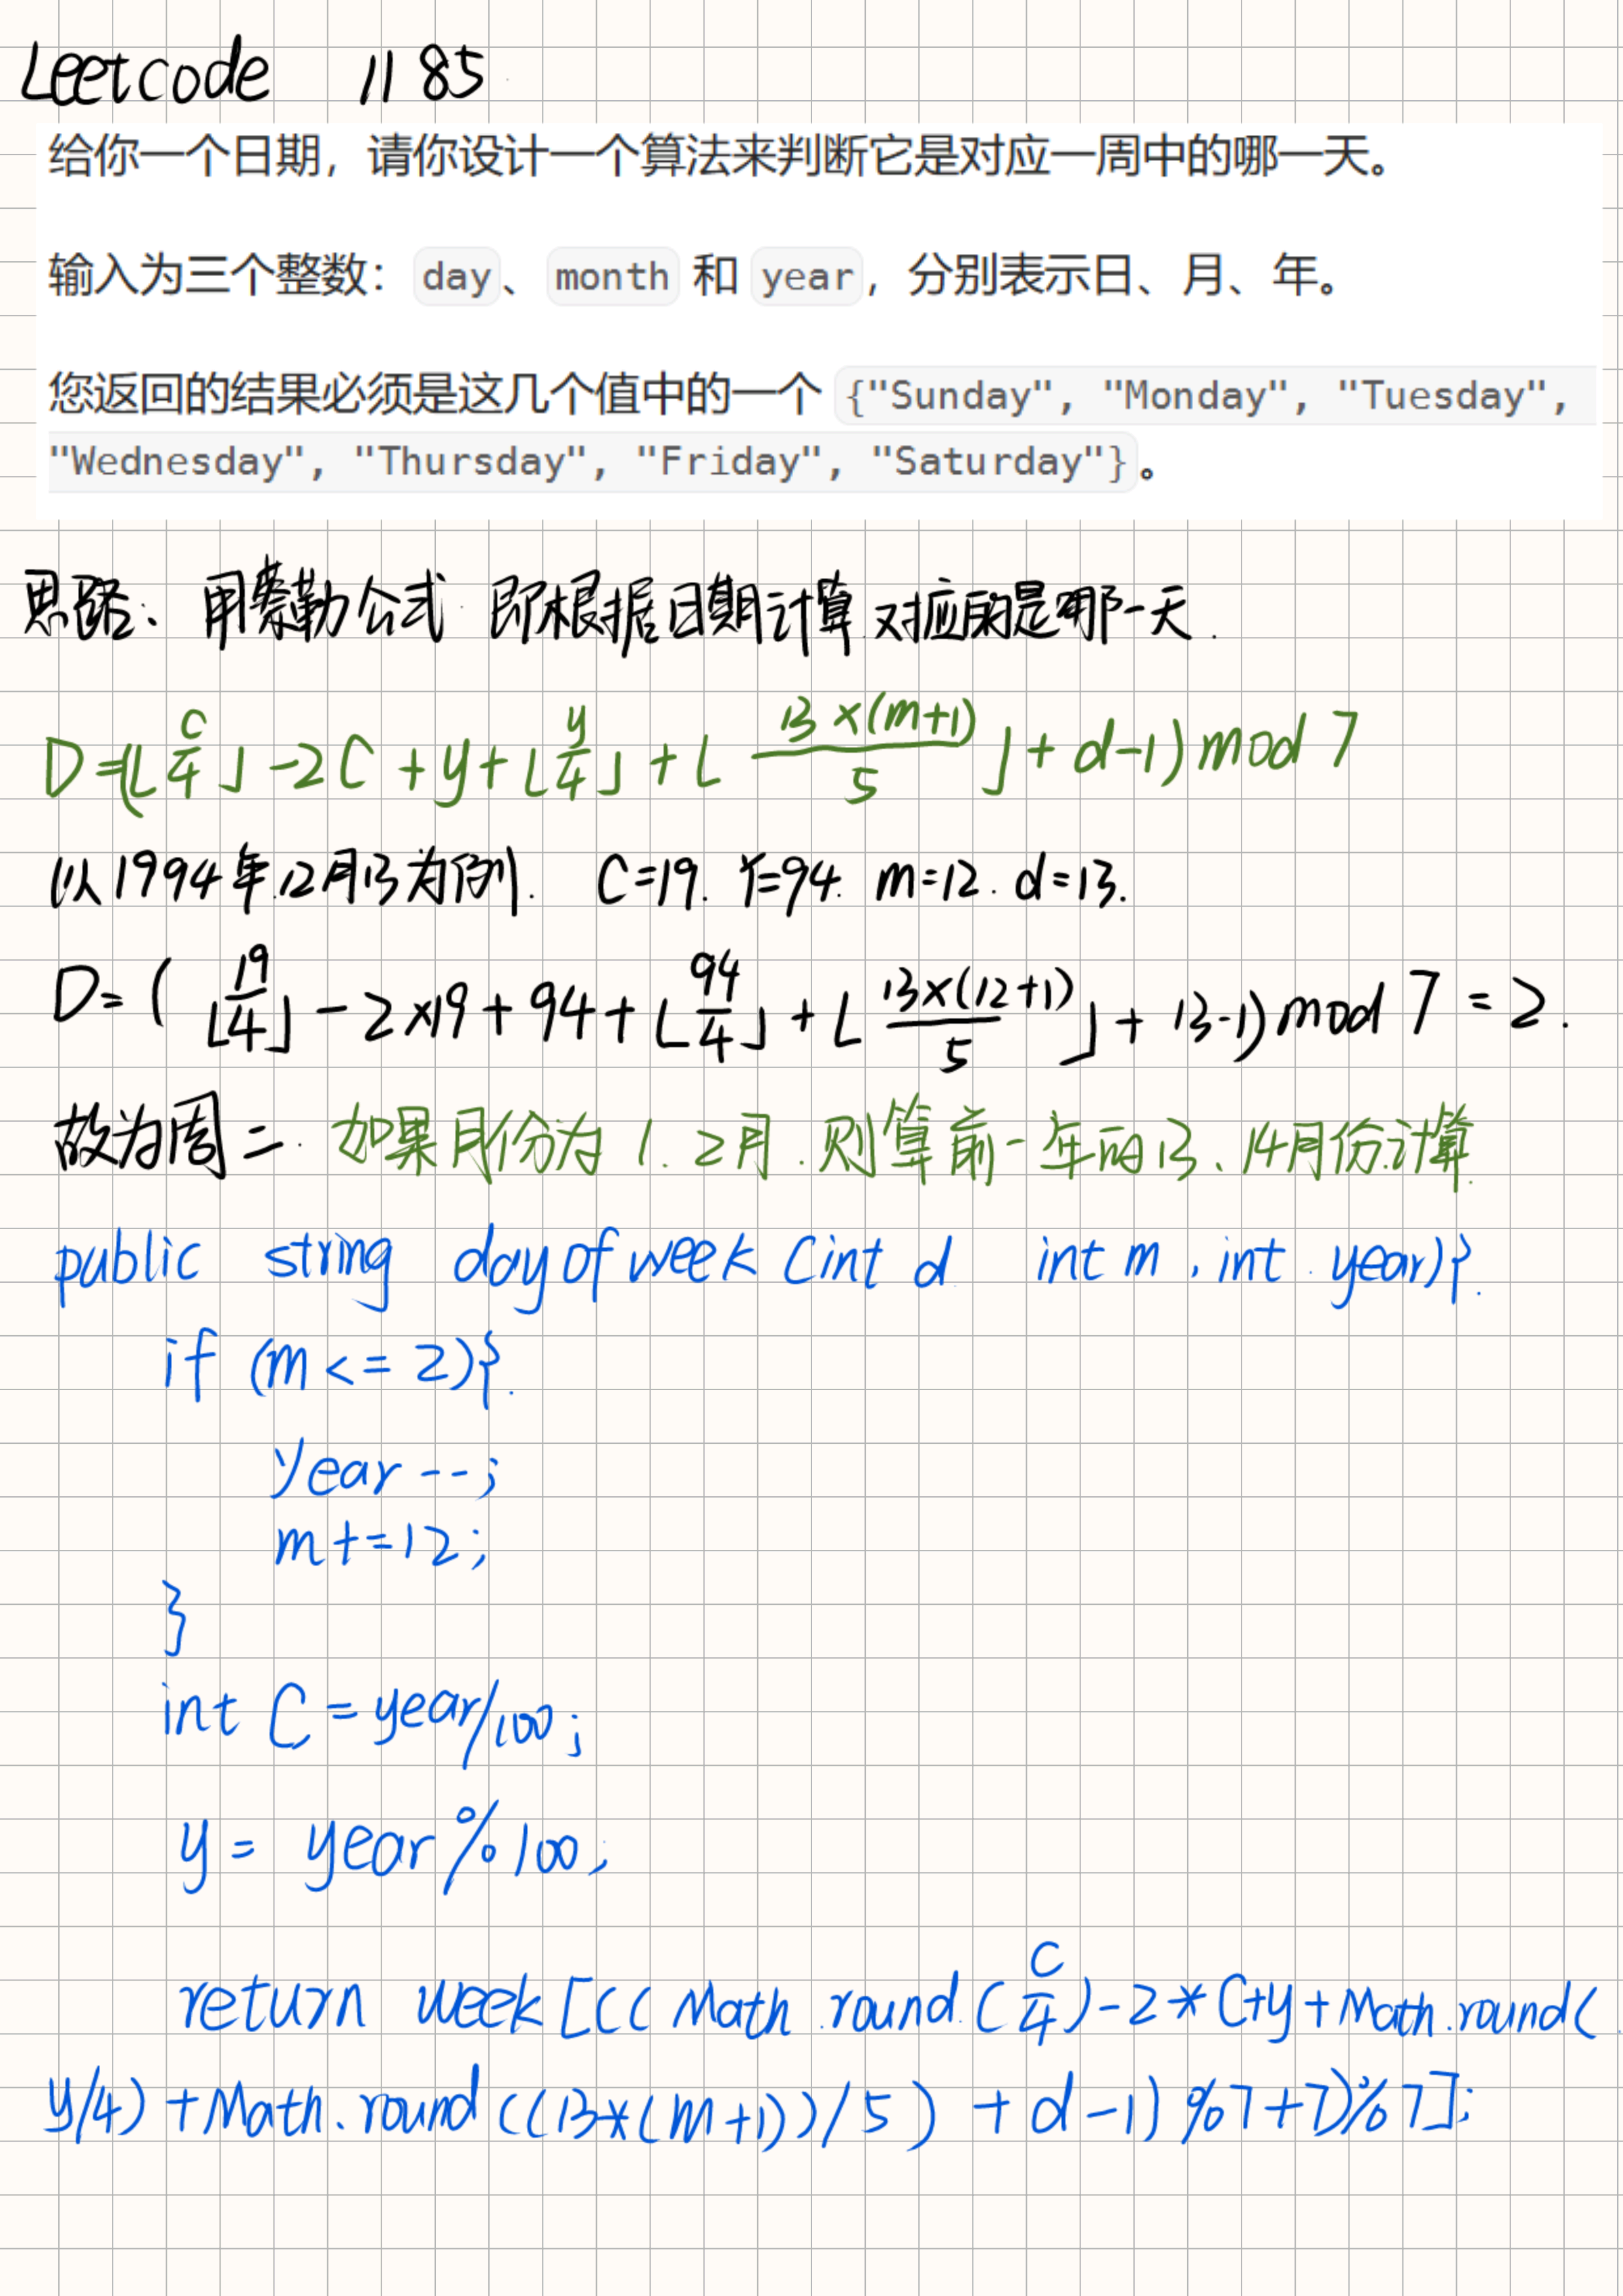 Leetcode 1185
给你一个日期，请你设计一个算法来判断它是对应一周中的哪一天。
输入为三个整数：day、month 和 year，分别表示日、月、年。
您返回的结果必须是这几个值中的一个 {"Sunday", "Monday", "Tuesday",
"Wednesday", "Thursday", "Friday", "Saturday"}。
思路: 用蔡勒公式 即根据日期计算对应的是哪一天.
D=(⌊c/4⌋-2C+y+⌊y/4⌋+⌊13×(m+1)/5⌋+d-1) mod 7
以1994年12月13为例. C=19. Y=94. m=12. d=13.
D=(⌊19/4⌋-2×19+94+⌊94/4⌋+⌊13×(12+1)/5⌋+13-1) mod 7=2.
故为周二. 如果月份为1.2月.则算前一年的13、14月份计算.
public string dayofweek(int d int m, int year){
if (m<=2){
year--;
m+=12;
}
int C=year/100;
y= year%100;
return week[((Math.round(C/4)-2*C+y+Math.round(
y/4)+Math.round((13*(m+1))/5)+d-1)%7+7)%7];